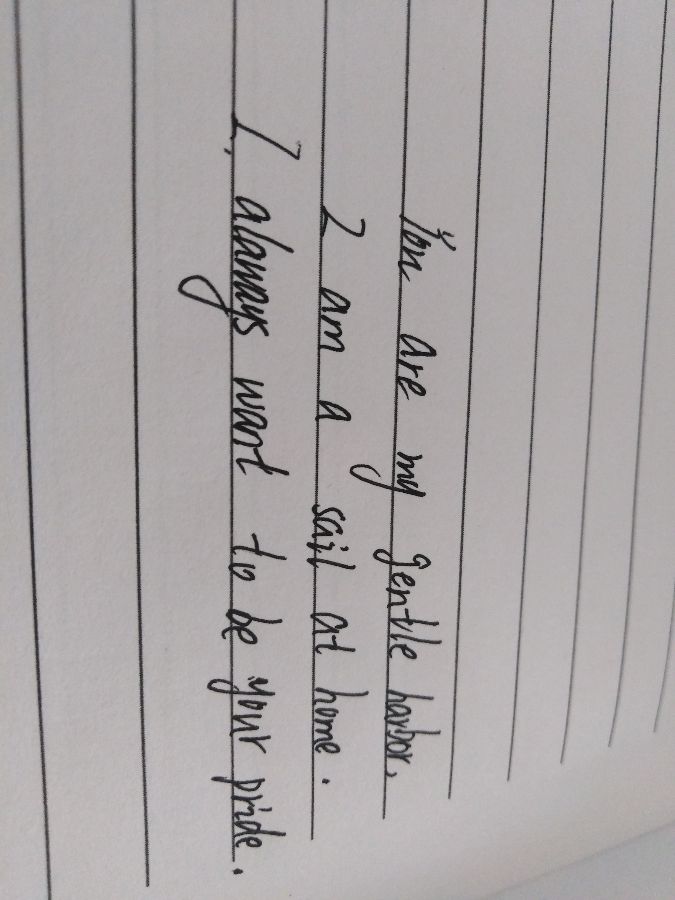 You are my gentle harbor.
I am a sail at home.
I always want to be your pride.